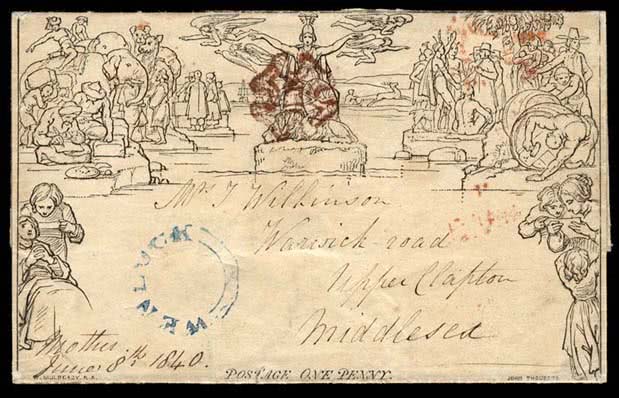 Mrs T Wilkinson
Warwick-road
Upper Clapton
Middlesex
WENLOCK
Mother.
June, 8th 1840.
POSTAGE ONE PENNY.
W. MULREADY, R.A.
JOHN THOMPSON